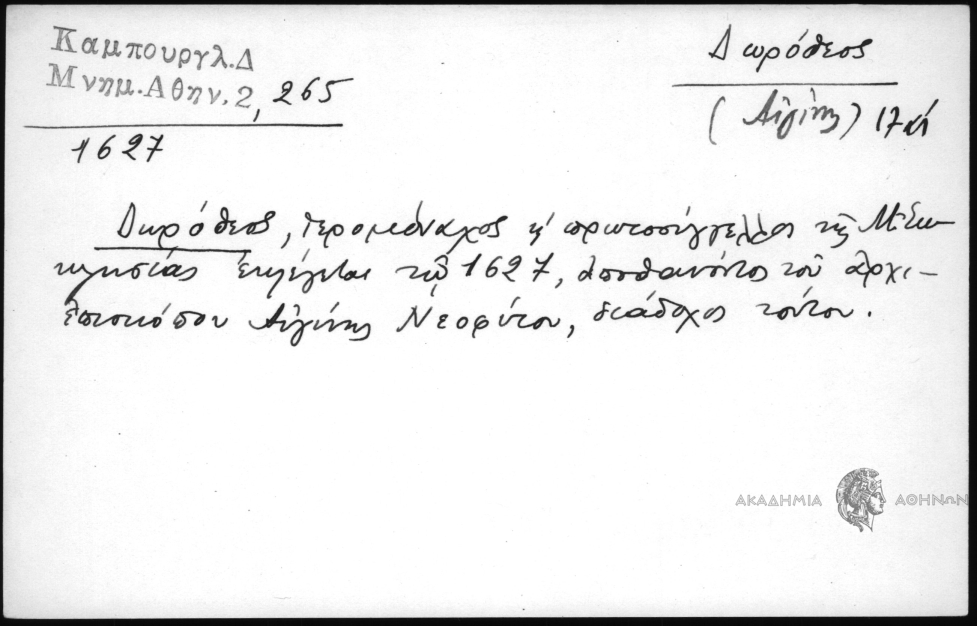 Καμπουργλ.Δ
Μνημ.Αθην.2, 265
1627
Δωρόθεος
(Αἰγίνης) 17 αἰ
Δωρόθεος, ἱερομόναχος κ' πρωτοσύγγελλος τῆς Μ. Ἐκ-
κλησίας ἐκλέγεται τῷ 1627, ἀποθανόντος τοῦ ἀρχι-
επισκόπου Αἰγίνης Νεοφύτου, διάδοχος τούτου.
ΑΚΑΔΗΜΙΑ ΑΘΗΝΩΝ